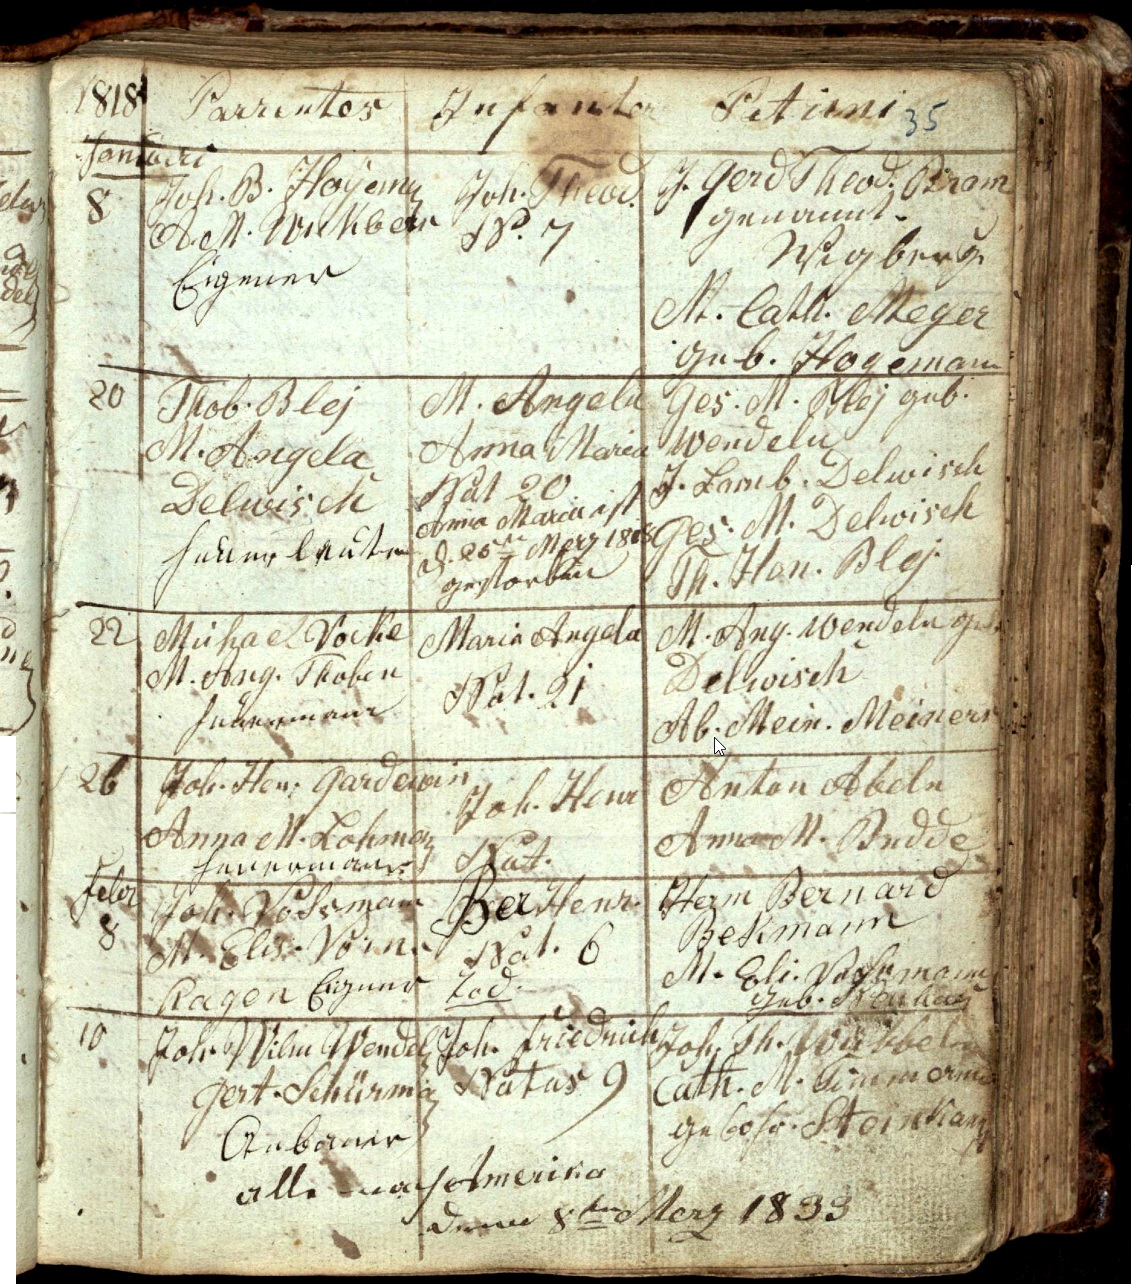 1818 Parrentes Infantes Petrini 35
Januari
8
Joh. B. Hogeman
A. M. Wukbeln
Eigener
Joh. Theod.
Nat. 7
J. Gerd Theod. Bram
genannt
Wigberg
M. Cath. Meyer
geb. Hogeman
20
Thob. Blej
M. Angela
Delwisch
heuer leute
M. Angela
Anna Maria
Nat 20
Anna Maria ist
d. 25ten Merz 1818
gestorben
Ges. M. Blej geb.
Wendeln
J. Lamb. Delwisch
Ges. M. Delwisch
Th. Hen. Blej
22
Michael Vocke
M. Ang. Thoben
heuermann
Maria Angela
Nat. 21
M. Ang. Wendeln geb.
Delwisch
Ab. Mein. Meiners
26
Joh. Hen. Gardewin
Anna M. Lohman
heuermann
Joh. Henr
Nat.
Anton Abeln
Anna M. Budde
Febr
8
Joh. Vosman
M. Elis. Vorn
Hagen Eigener
Ber Henr.
Nat. 6
Tod.
Herm Bernard
Bekmann
M. Eli. Vosmann
geb.
10
Joh. Wilm Wendel
Gert. Schürman
Anbauer
Joh. Friedrich
Natus 9
Joh. Th. Wukbeln
Cath. M. Timmerman
gebohr. Steinkamp
alle nach Amerika
denn 8ten Merz 1833